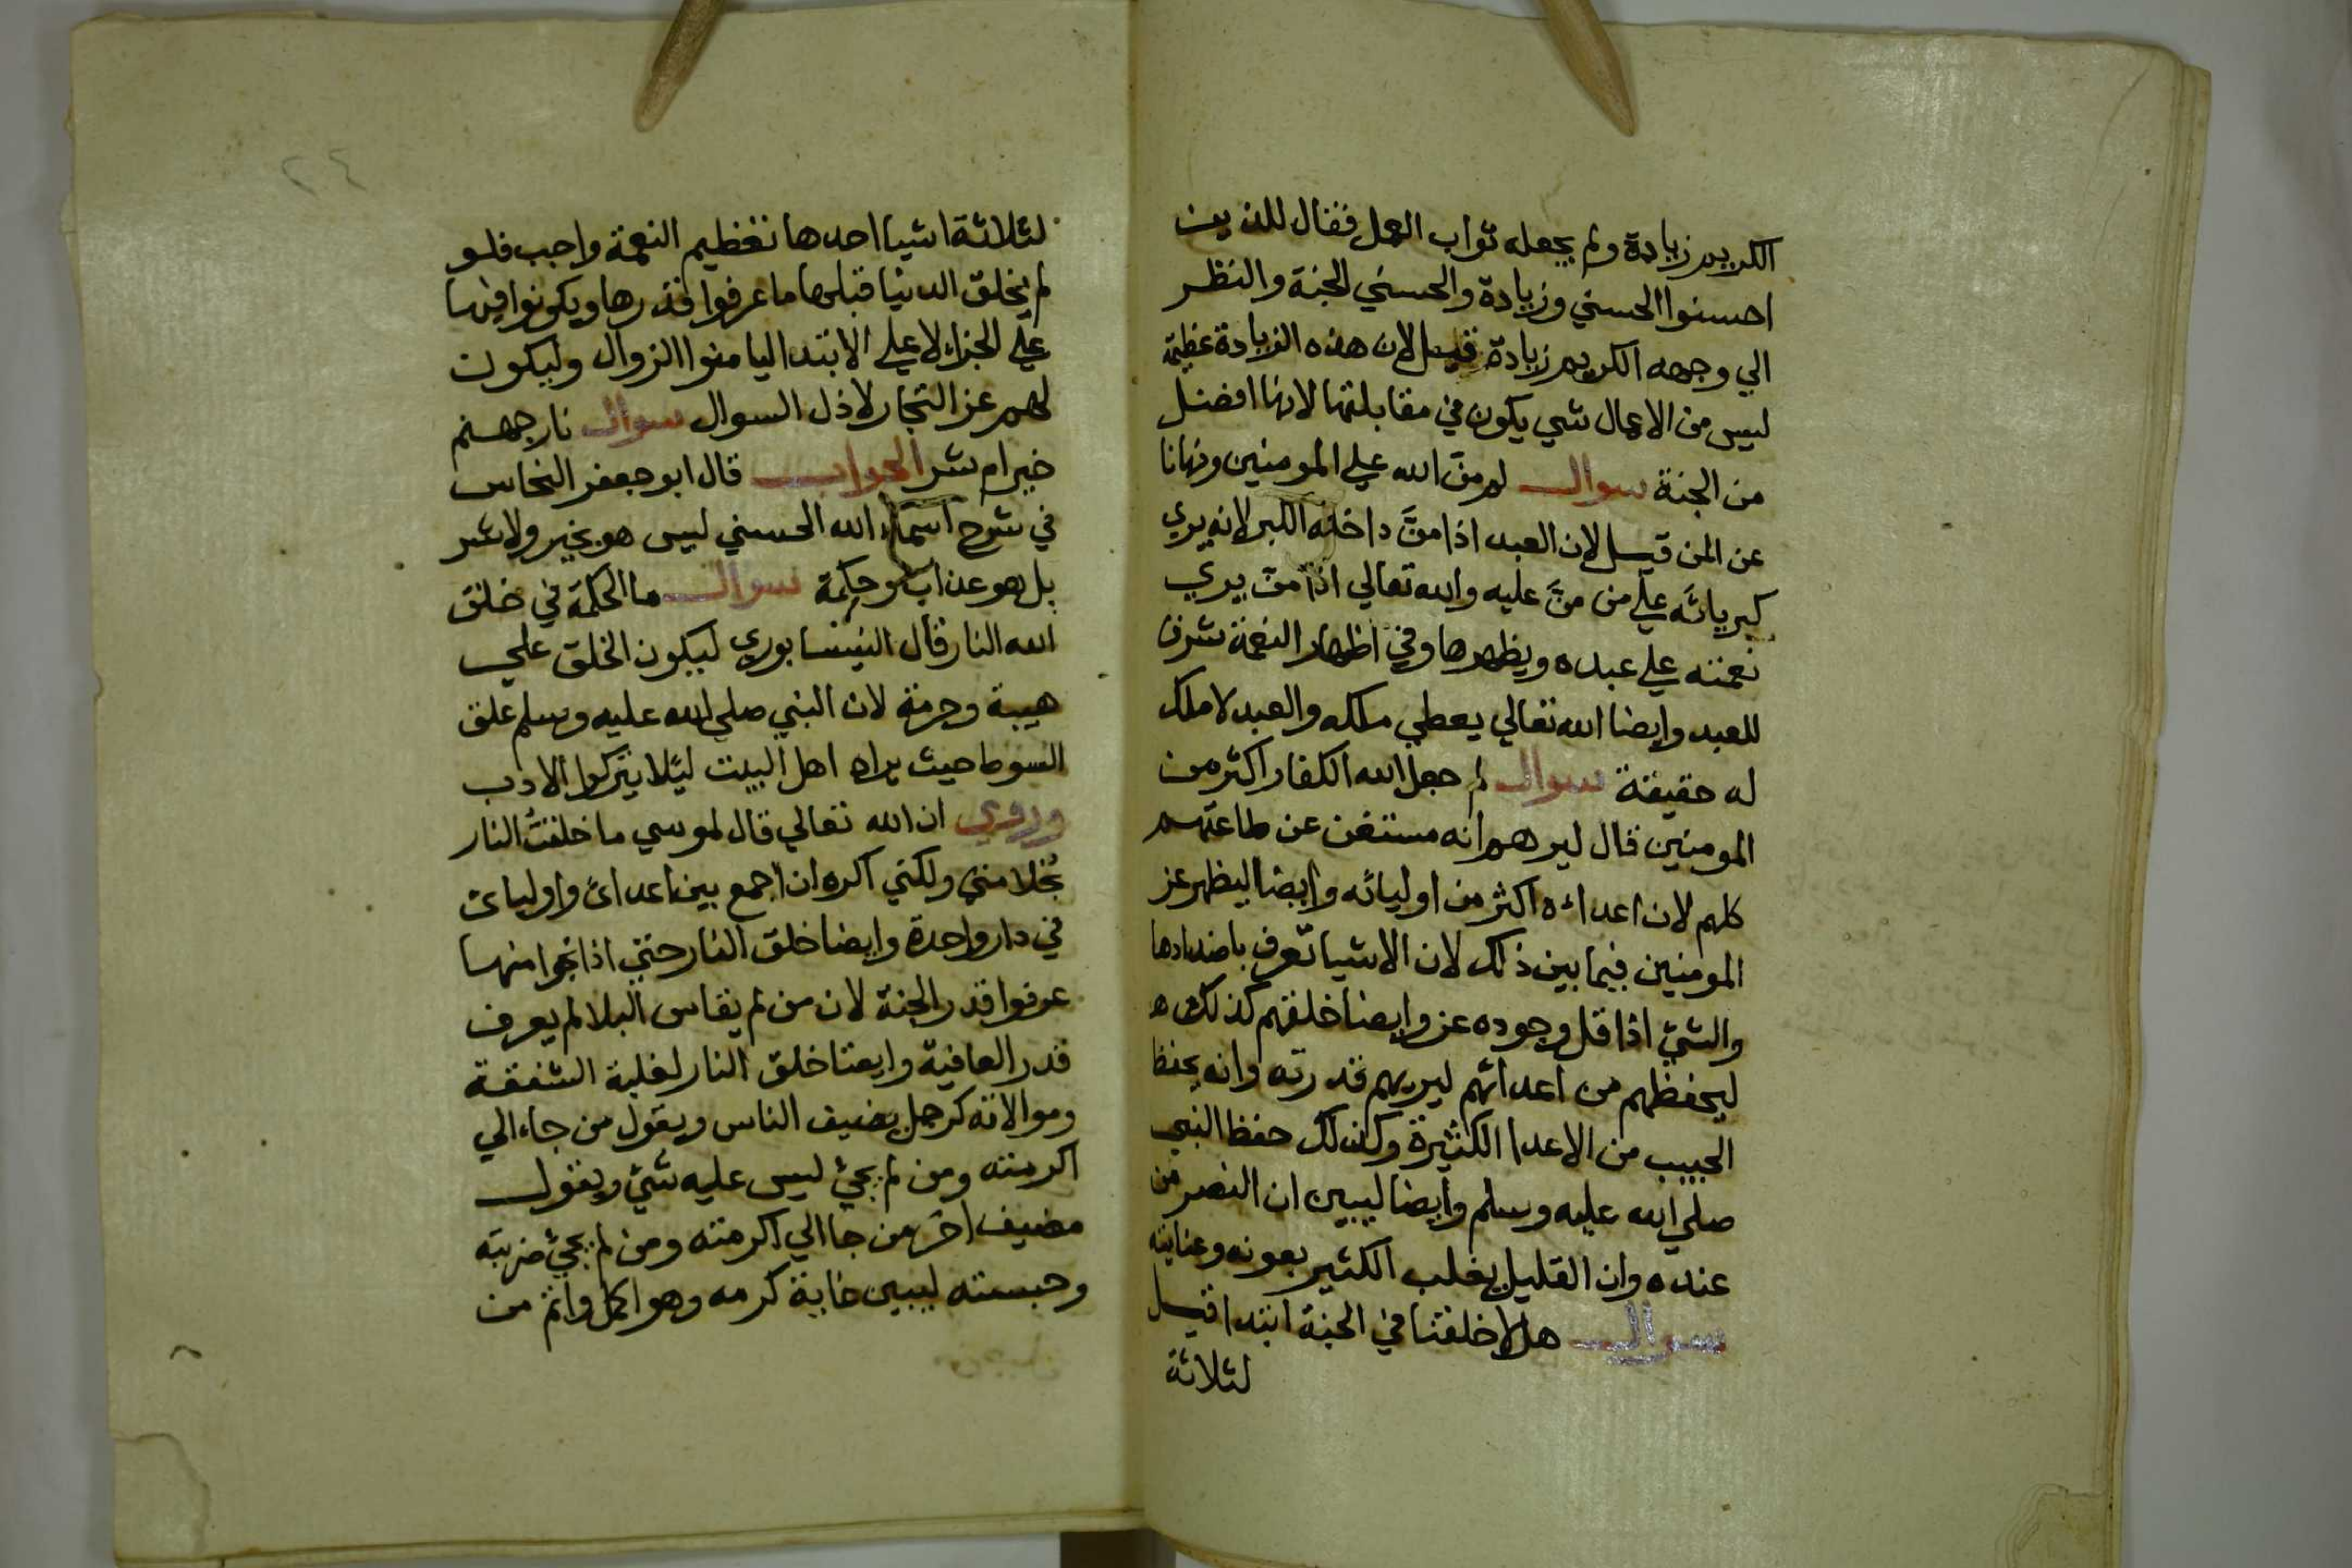 الكريم زيادة ولم يجعله ثواب العمل فقال للذين
احسنوا الحسني وزيادة والحسني الجنة والنظر
الي وجهه الكريم زيادة قيل لان هذه الزيادة عظيمة
ليس من الاعمال شي يكون في مقابلتها لانها افضل
من الجنة سوال لم منّ الله علي المومنين ونهانا
عن المن قيل لان العبد اذا منَّ داخله الكبر لانه يري
كبريائه علي من منَّ عليه والله تعالي اذا منّ يري
نعمته علي عبده ويظهرها وفي اظهار النعمة شرف
للعبد وايضا الله تعالي يعطي ملكه والعبد لا ملك
له حقيقة سوال لم جعل الله الكفار اكثر من
المومنين قال ليرهم انه مستغن عن طاعتهم
كلهم لان اعداءه اكثر من اوليائه وايضا ليظهر عز
المومنين فيما بين ذلك لان الاشيا تعرف باضدادها
والشيء اذا قل وجوده عز وايضا خلقهم كذلك ه
ليحفظهم من اعدائهم ليريهم قدرته وانه يحفظ
الحبيب من الاعدا الكثيرة وكذلك حفظ النبي
صلي الله عليه وسلم وايضا ليبين ان النصر من
عنده وان القليل يغلب الكثير بعونه وعنايته
سوال هلا خلقنا في الجنة ابتدا قيل
لثلاثة
٢٤
لثلاثة اشيا احدها تعظيم النعمة واجب فلو
لم يخلق الدنيا قبلها ما عرفوا قدرها ويكونوا فيها
علي الجزاء لا علي الابتدا ليامنوا الزوال وليكون
لهم عز التجار لا ذل السوال سوال نار جهنم
خير ام شر الجواب قال ابو جعفر النحاس
في شرح اسماء الله الحسني ليس هو بخير ولا شر
بل هو عذاب وحكمة سوال ما الحكمة في خلق
الله النار قال النيسابوري ليكون الخلق علي
هيبة وحرمة لان النبي صلي الله عليه وسلم علق
السوط حيث يراه اهل البيت ليئلا يتركوا الادب
وروي ان الله تعالي قال لموسي ما خلقتُ النار
بُخلا مني ولكني اكره ان اجمع بين اعدائ واوليائ
في دار واحدة وايضا خلق النار حتي اذا نجوا منها
عرفوا قدر الجنة لان من لم يقاس البلا لم يعرف
قدر العافية وايضا خلق النار لغلبة الشفقة
وموالاته كرجل يضيف الناس ويقول من جاء الي
اكرمته ومن لم يجئ ليس عليه شئ ويقول
مضيف اخر من جا الي اكرمته ومن لم يجئ ضربته
وحبسته ليبين غاية كرمه وهو اكمل واتم من